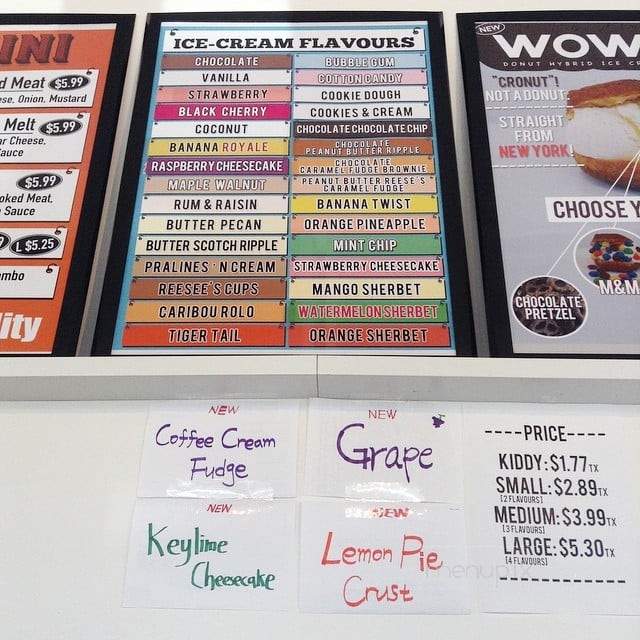 INI
d Meat $5.99
ese, Onion, Mustard
Melt $5.99
ar Cheese,
auce
$5.99
oked Meat,
Sauce
L $5.25
mbo
ity
ICE-CREAM FLAVOURS
CHOCOLATE
VANILLA
STRAWBERRY
BLACK CHERRY
COCONUT
BANANA ROYALE
RASPBERRY CHEESECAKE
MAPLE WALNUT
RUM & RAISIN
BUTTER PECAN
BUTTER SCOTCH RIPPLE
PRALINES 'N CREAM
REESEE'S CUPS
CARIBOU ROLO
TIGER TAIL
BUBBLE GUM
COTTON CANDY
COOKIE DOUGH
COOKIES & CREAM
CHOCOLATE CHOCOLATE CHIP
CHOCOLATE
PEANUT BUTTER RIPPLE
CHOCOLATE
CARAMEL FUDGE BROWNIE
PEANUT BUTTER REESE'S
CARAMEL FUDGE
BANANA TWIST
ORANGE PINEAPPLE
MINT CHIP
STRAWBERRY CHEESECAKE
MANGO SHERBET
WATERMELON SHERBET
ORANGE SHERBET
NEW
WOW
DONUT HYBRID ICE CR
"CRONUT"!
NOT A DONUT.
STRAIGHT
FROM
NEW YORK
CHOOSE Y
M&M
CHOCOLATE
PRETZEL
NEW
Coffee Cream
Fudge
NEW
Grape
NEW
Keylime
Cheesecake
NEW
Lemon Pie
Crust
----PRICE----
KIDDY: $1.77TX
SMALL: $2.89TX
[2 FLAVOURS]
MEDIUM: $3.99TX
[3 FLAVOURS]
LARGE: $5.30TX
[4 FLAVOURS]
menupix